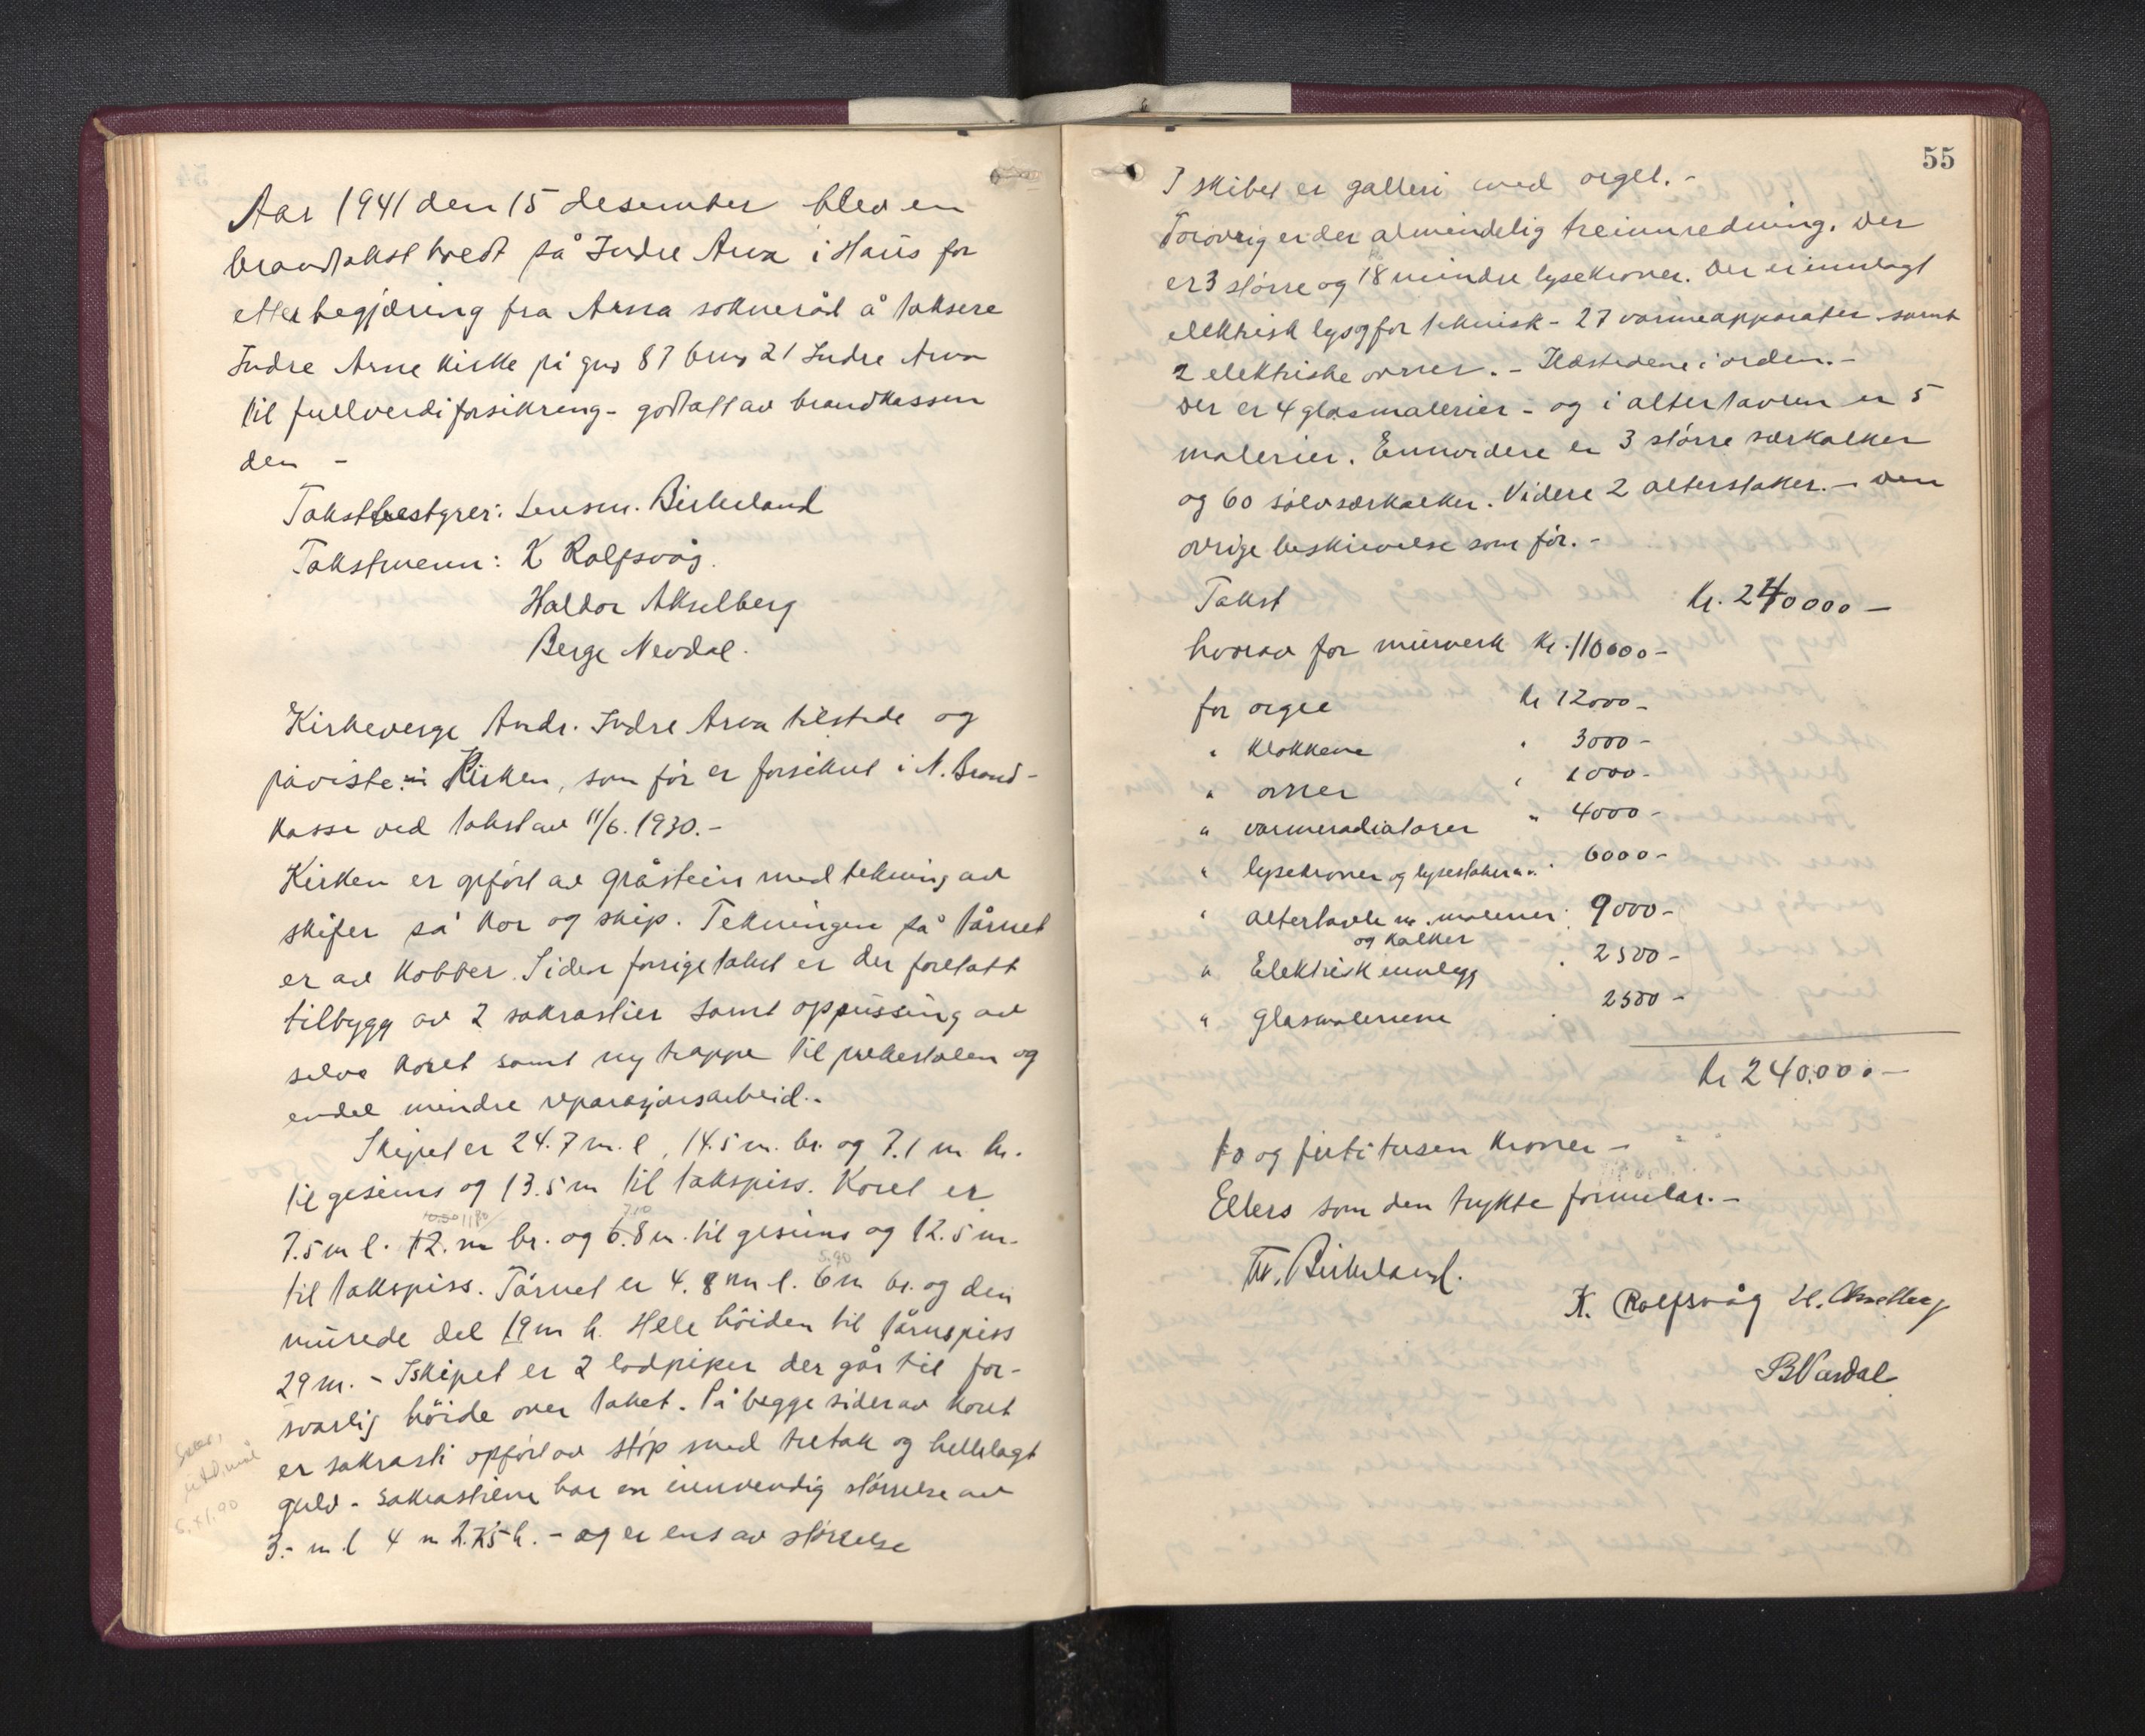 Aar 1941 den 15 desember blev en
brandtakst hvedt på Indre Arna i Haus for
etter begjæring fra Arna sokneråd å taksere
Indre Arne kirke på gno 87 bno 21 Indre Arna
til fullverdiforsikring - godtatt av brandkassen
den -
Takstbestyrer: Lensm. Birkeland
Takstmenn: K Rolfsvåg.
Haldor Akselberg
Berge Nevdal.
Kirkeverge Andr. Indre Arna tilstede og
påviste Kirken, som før er forsikret i N. Brand-
kasse ved takst av 11/6. 1930. -
Kirken er opført av gråstein med tekning av
skifer på kor og skip. Tekningen på tårnet
er av kobber. Siden forrige takst er der foretatt
tilbygg av 2 sakrastier samt oppussing av
selve koret samt ny trappe til prekestolen og
endel mindre reparasjonsarbeid. -
Skipet er 24.7 m. l, 14.5 m. br. og 7.1 m h.
til gesims og 13.5 m til takspiss. Koret er
10.50 1180 7.10
7.5 m l. 12. m br. og 6.8 m. til gesims og 12.5 m.
5.90
til takspiss. Tårnet er 4.8 m l. 6 m br. og den
murede del 19 m h. Hele høiden til tårnspiss
29 m. - I skipet er 2 lodpiper der går til for-
svarlig høide over taket. På begge sider av koret
er sakrasti opført av støp med tretak og hellelagt
gulv. Sakrastiene har en innvendig størrelse av
3.- m l 4 m 2.75 h. - og er ens av størrelse
55
I skibet er galleri med orgel. -
Forøvrig er der almindelig treinnredning. Der
er 3 større og 18 mindre lysekroner. Der er innlagt
elektrisk lys og for teknisk - 27 varmeapparater samt
2 elektriske ovner. - Ildstedene i orden. -
Der er 4 glasmalerier - og i altertavlen er 5
malerier. Ennvidere er 3 større særkalker
og 60 sølvsærkalker. Videre 2 alterstaker. - Den
øvrige beskrivelse som før. -
Takst Kr. 240000 -
hvorav for murverk Kr. 110000 -
for orgel kr 12000 -
" klokkene " 3000 -
" ovner " 1000 -
" varmeradiatorer " 4000 -
" lysekroner og lysestakene " 6000 -
" altertavle m. malerier " 9000 -
og kalker
" Elektrisk innlegg " 2500 -
" Glasmaleriene " 2500 -
Kr 240.000 -
to og firti tusen kroner -
Ellers som den trykte formular. -
Th. Birkeland.
K. Rolfsvåg H. Akselberg
B Nevdal